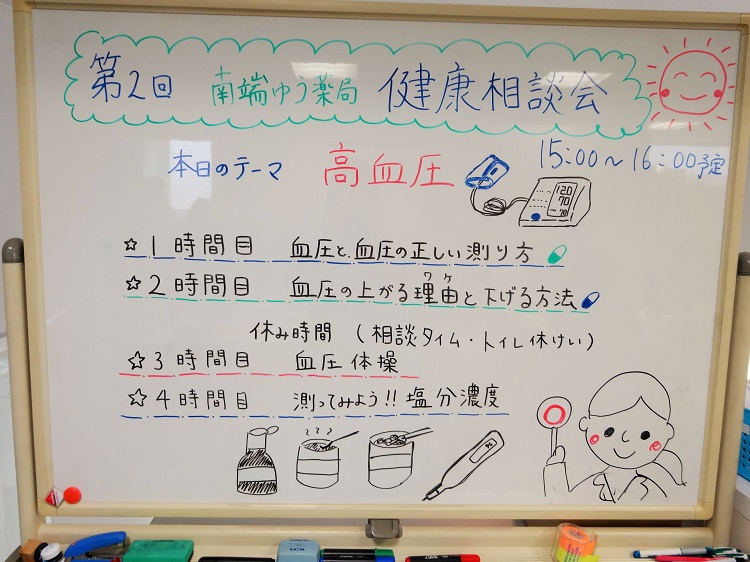 第2回 南端ゆう薬局 健康相談会
本日のテーマ 高血圧 15:00～16:00予定
120
70
70
☆1時間目 血圧と血圧の正しい測り方
ワケ
☆2時間目 血圧の上がる理由と下げる方法
休み時間 (相談タイム・トイレ休けい)
☆3時間目 血圧体操
☆4時間目 測ってみよう!!塩分濃度